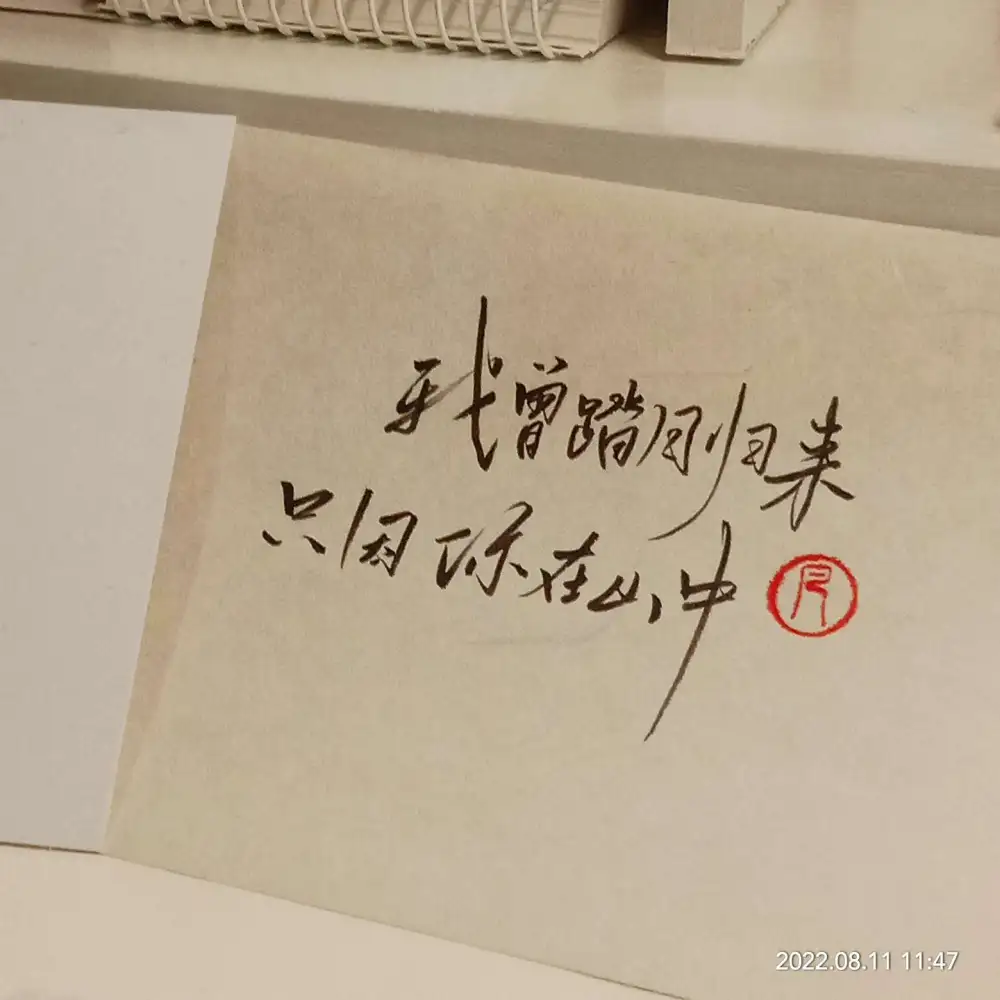 我曾踏月归来
只因你在山中
2022.08.11 11:47